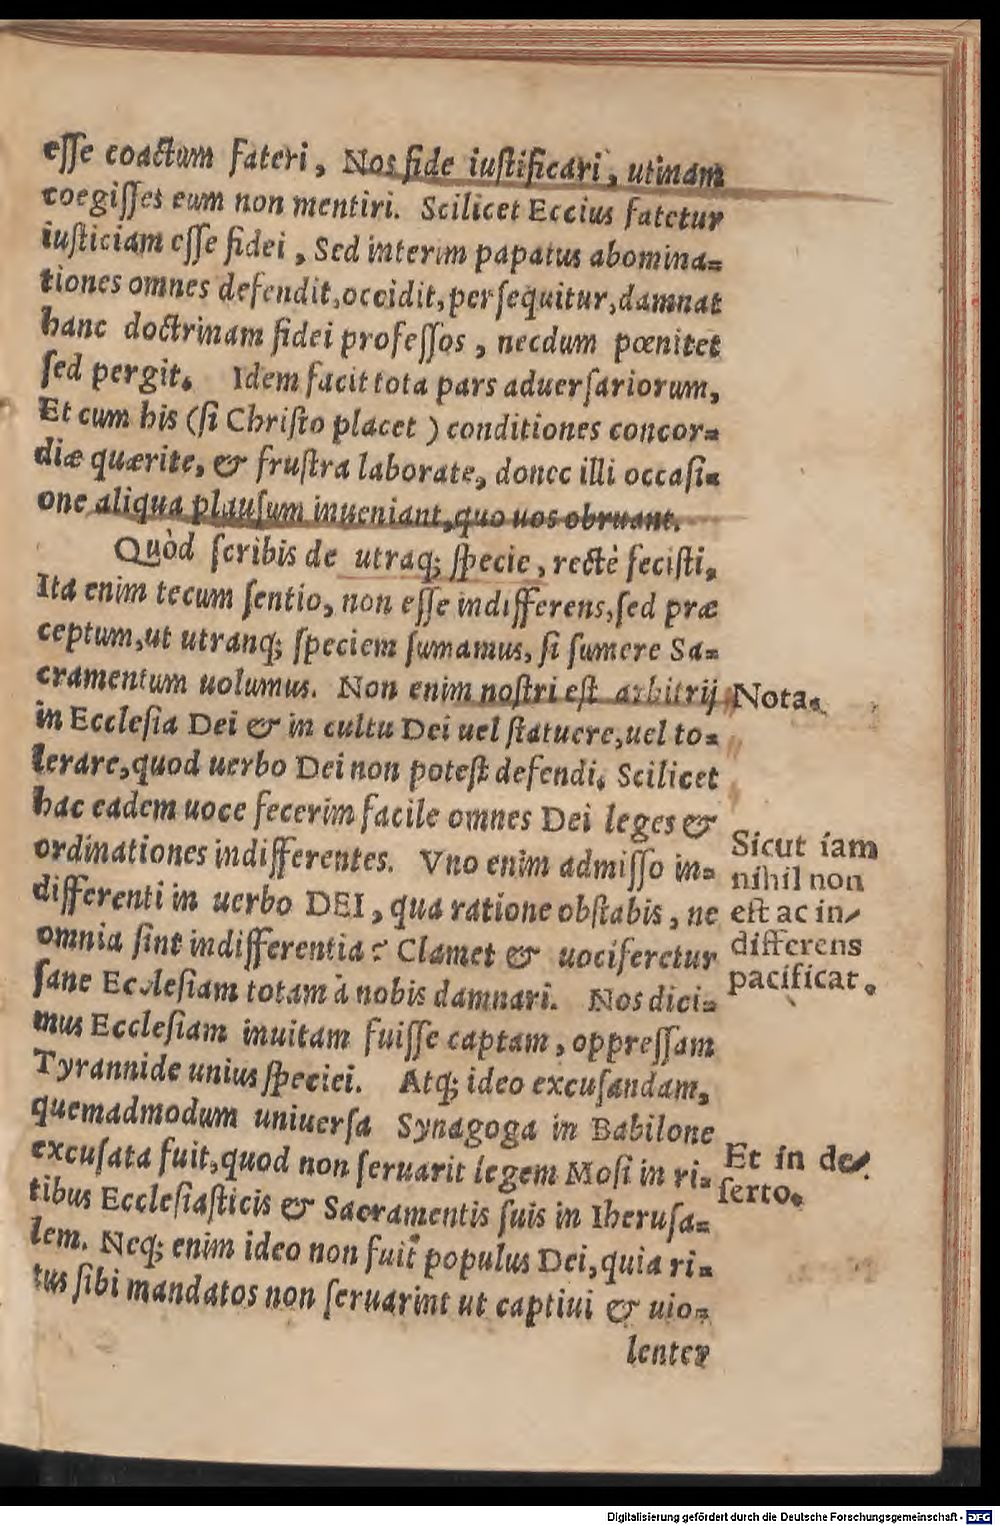 eſſe coactum fateri, Nos fide iuſtificari, utinam
coegiſſet eum non mentiri. Scilicet Eccius fatetur
iuſticiam eſſe fidei, Sed interim papatus abomina=
tiones omnes defendit, occidit, perſequitur, damnat
hanc doctrinam fidei profeſſos, necdum pœnitet
ſed pergit. Idem facit tota pars aduerſariorum,
Et cum his (ſi Chriſto placet) conditiones concor=
diæ quærite, & fruſtra laborate, donec illi occaſi=
one aliqua plauſum inueniant, quo uos obruant.
Quòd ſcribis de utraq; ſpecie, rectè feciſti,
Ita enim tecum ſentio, non eſſe indifferens, ſed præ
ceptum, ut utranq; ſpeciem ſumamus, ſi ſumere Sa=
cramentum uolumus. Non enim noſtri eſt arbitrij
Nota.
in Eccleſia Dei & in cultu Dei uel ſtatuere, uel to=
lerare, quod uerbo Dei non poteſt defendi. Scilicet
hac eadem uoce fecerim facile omnes Dei leges &
ordinationes indifferentes. Vno enim admiſſo in=
differenti in uerbo DEI, qua ratione obſtabis, ne
omnia ſint indifferentia? Clamet & uociferetur
Sicut iam
nihil non
eſt ac in-
differens
pacificat.
ſane Eccleſiam totam à nobis damnari. Nos dici=
mus Eccleſiam inuitam fuiſſe captam, oppreſſam
Tyrannide unius ſpeciei. Atq; ideo excuſandam,
quemadmodum uniuerſa Synagoga in Babilone
excuſata fuit, quod non ſeruarit legem Moſi in ri=
Et in de-
ſerto.
tibus Eccleſiaſticis & Sacramentis ſuis in Iheruſa=
lem. Neq; enim ideo non fuit populus Dei, quia ri=
tus ſibi mandatos non ſeruarint ut captiui & uio=
lenter
Digitalisierung gefördert durch die Deutsche Forschungsgemeinschaft - DFG